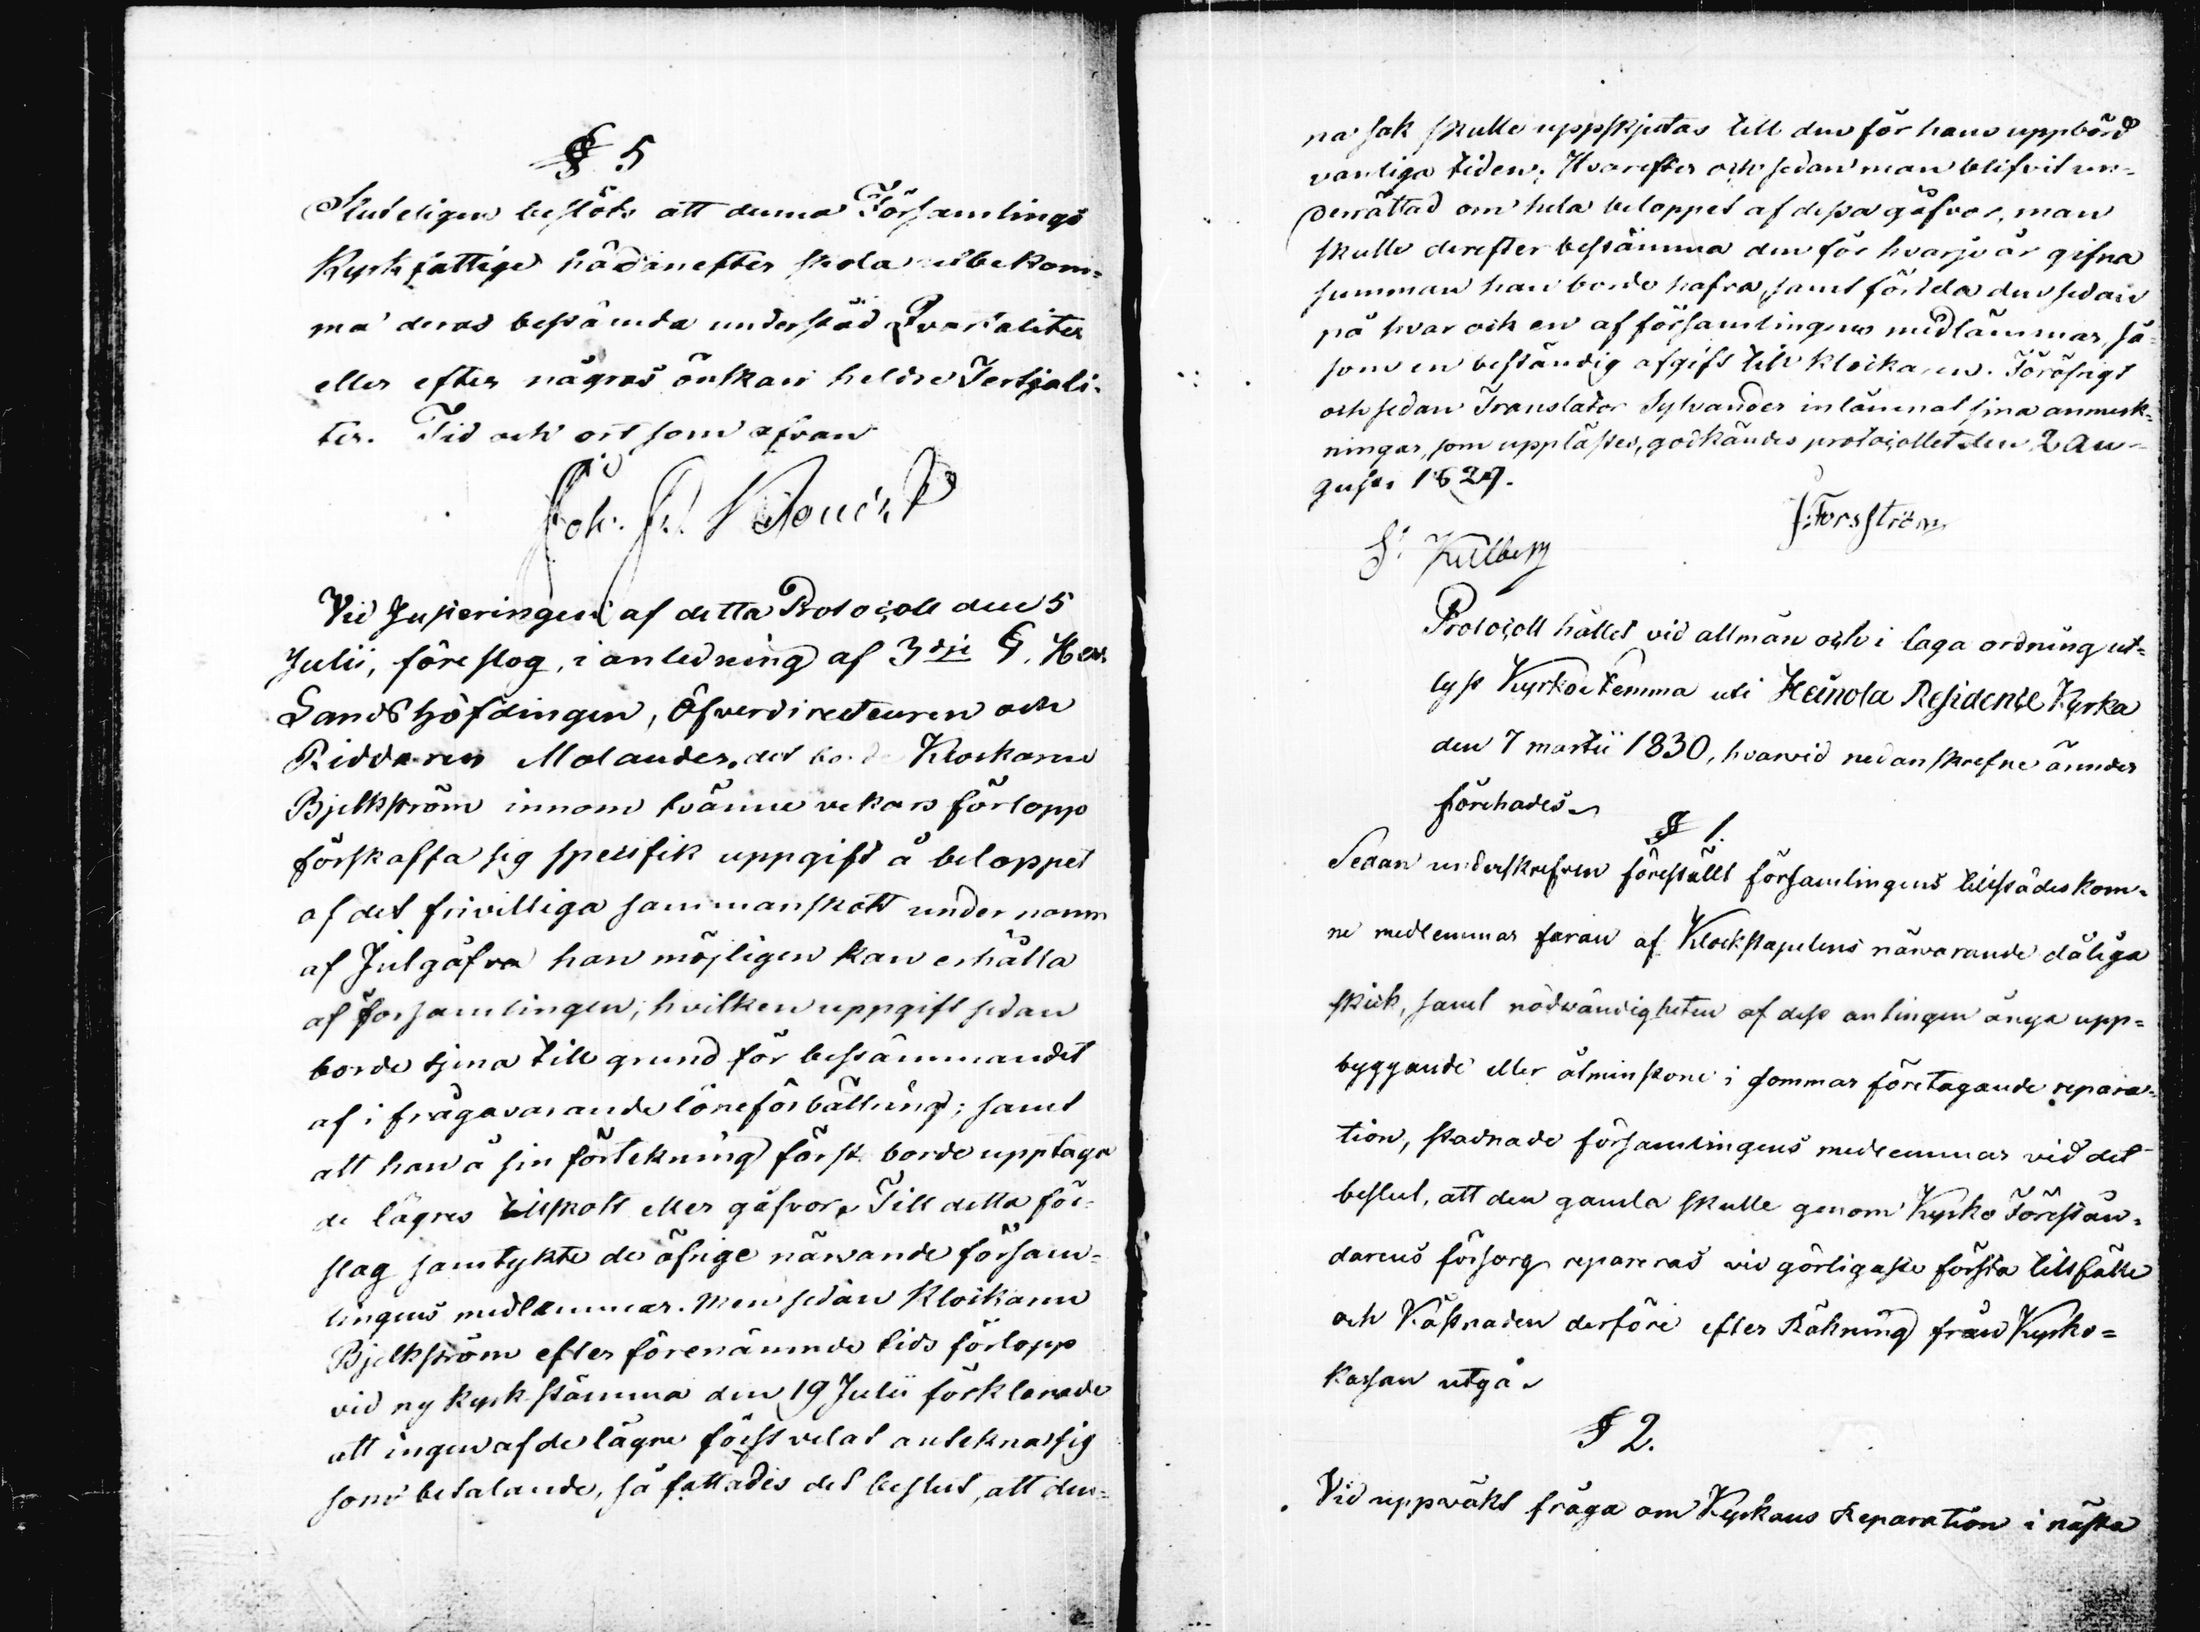 § 5
Sluteligen beslöts att denna Församlings
Kyrkfattige hädanefter skola utbekom=
ma deras bestämda understöd Qvartaliter
eller efter någras önskan heldre Tertiali-
ter. Tid och ort som ofvan
Joh. Fr.
Vid Justeringen af detta Protocoll den 5
Julii, föreslog, i anledning af 3dje §. Herr
Landshöfdingen, Öfverdirecteuren och
Riddaren Molander, det borde Klockaren
Bjelkström innom tvänne vekors förlopp
förskaffa sig specifik uppgift å beloppet
af det frivilliga sammanskott under namn
af Julgåfva han möjligen kan erhålla
af församlingen, hvilken uppgift sedan
borde tjena till grund för bestämmandet
af i frågavarande löneförbättring; samt
att han å sin förtekning först borde upptaga
de lägres tillskott eller gåfvor. Till detta för-
slag samtykte de öfrige närvande försam=
lingens medlemmar. Men sedan Klockaren
Bjelkström efter förenämnde tids förlopp
vid ny kyrkstämma den 19 Julii förklarade
att ingen af de lägre först velat anteknat sig
som betalande, så fattades det beslut, att den=
na sak skulle uppskjutas till den för hans uppbörd
vanliga tiden; Hvarefter och sedan man blifvit un=
derrättad om hela beloppet af dessa gåfvor, man
skulle derefter bestämma den för hvarje år gifna
summan han borde hafva, samt fördela den sedan
på hvar och en af församlingens medlämmar, så=
som en beständig afgift till klockaren. Föröfrigt
och sedan Translator Sylvander inlämnat sina anmerk=
ningar, som upplästes, godkändes protocollet den 2 Au=
gusti 1829.
J. Forsström
Killberg
Protocoll hållet vid allmän och i laga ordning ut=
lyst Kyrkostemma uti Heinola Residence Kyrka
den 7 martii 1830, hvarvid nedanskrefne ämnder
förehades.
§ 1.
Sedan underskrefven föreställt församlingens tillstädeskom=
ne medlemmar faran af Klockstapelens närvarande dåliga
skick, samt nödvändigheten af dess antingen ånya upp=
byggande eller åtminstone i sommar företagande repara=
tion, stadnade församlingens medlemmar vid det
beslut, att den gamla skulle genom Kyrko Förestån=
darens försorg repareras vid görligaste första tillfälle
och Kåstnaden derföre efter Räkning från Kyrko=
kassan utgå.
§ 2.
Vid uppväkt fråga om Kyrkans Reparation i nästa